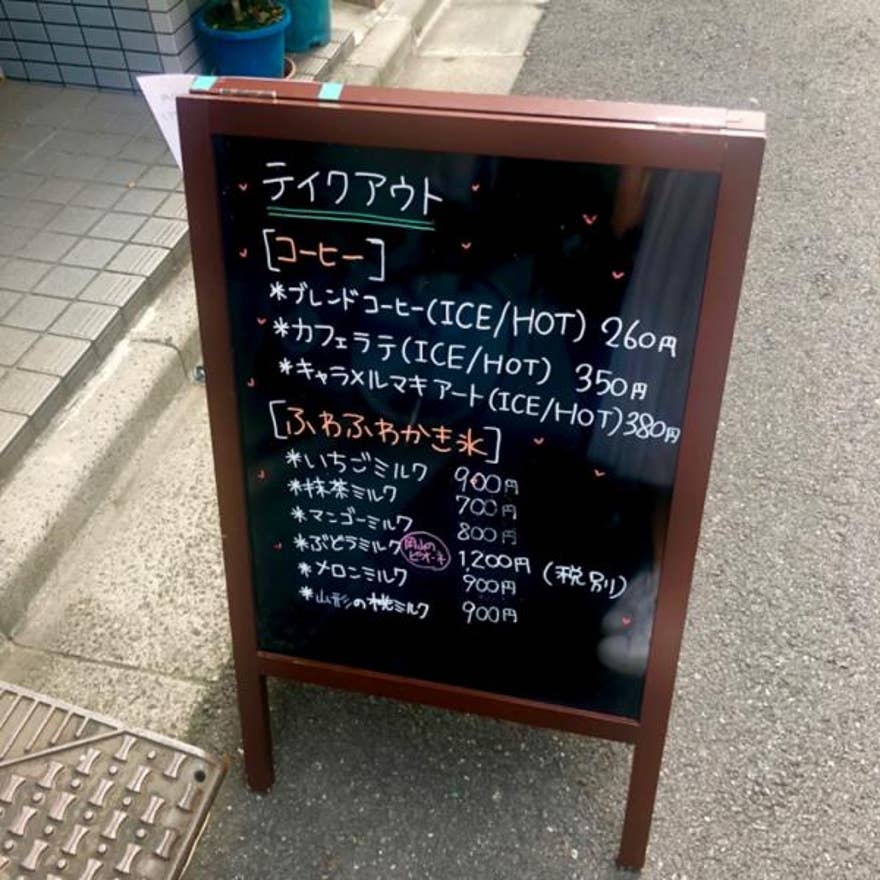 テイクアウト
[コーヒー]
*ブレンドコーヒー(ICE/HOT) 260円
*カフェラテ(ICE/HOT) 350円
*キャラメルマキアート(ICE/HOT)380円
[ふわふわかき氷]
*いちごミルク 900円
*抹茶ミルク 700円
*マンゴーミルク 800円
*ぶどうミルク 岡山のピオーネ 1,200円 (税別)
*メロンミルク 900円
*山形の桃ミルク 900円